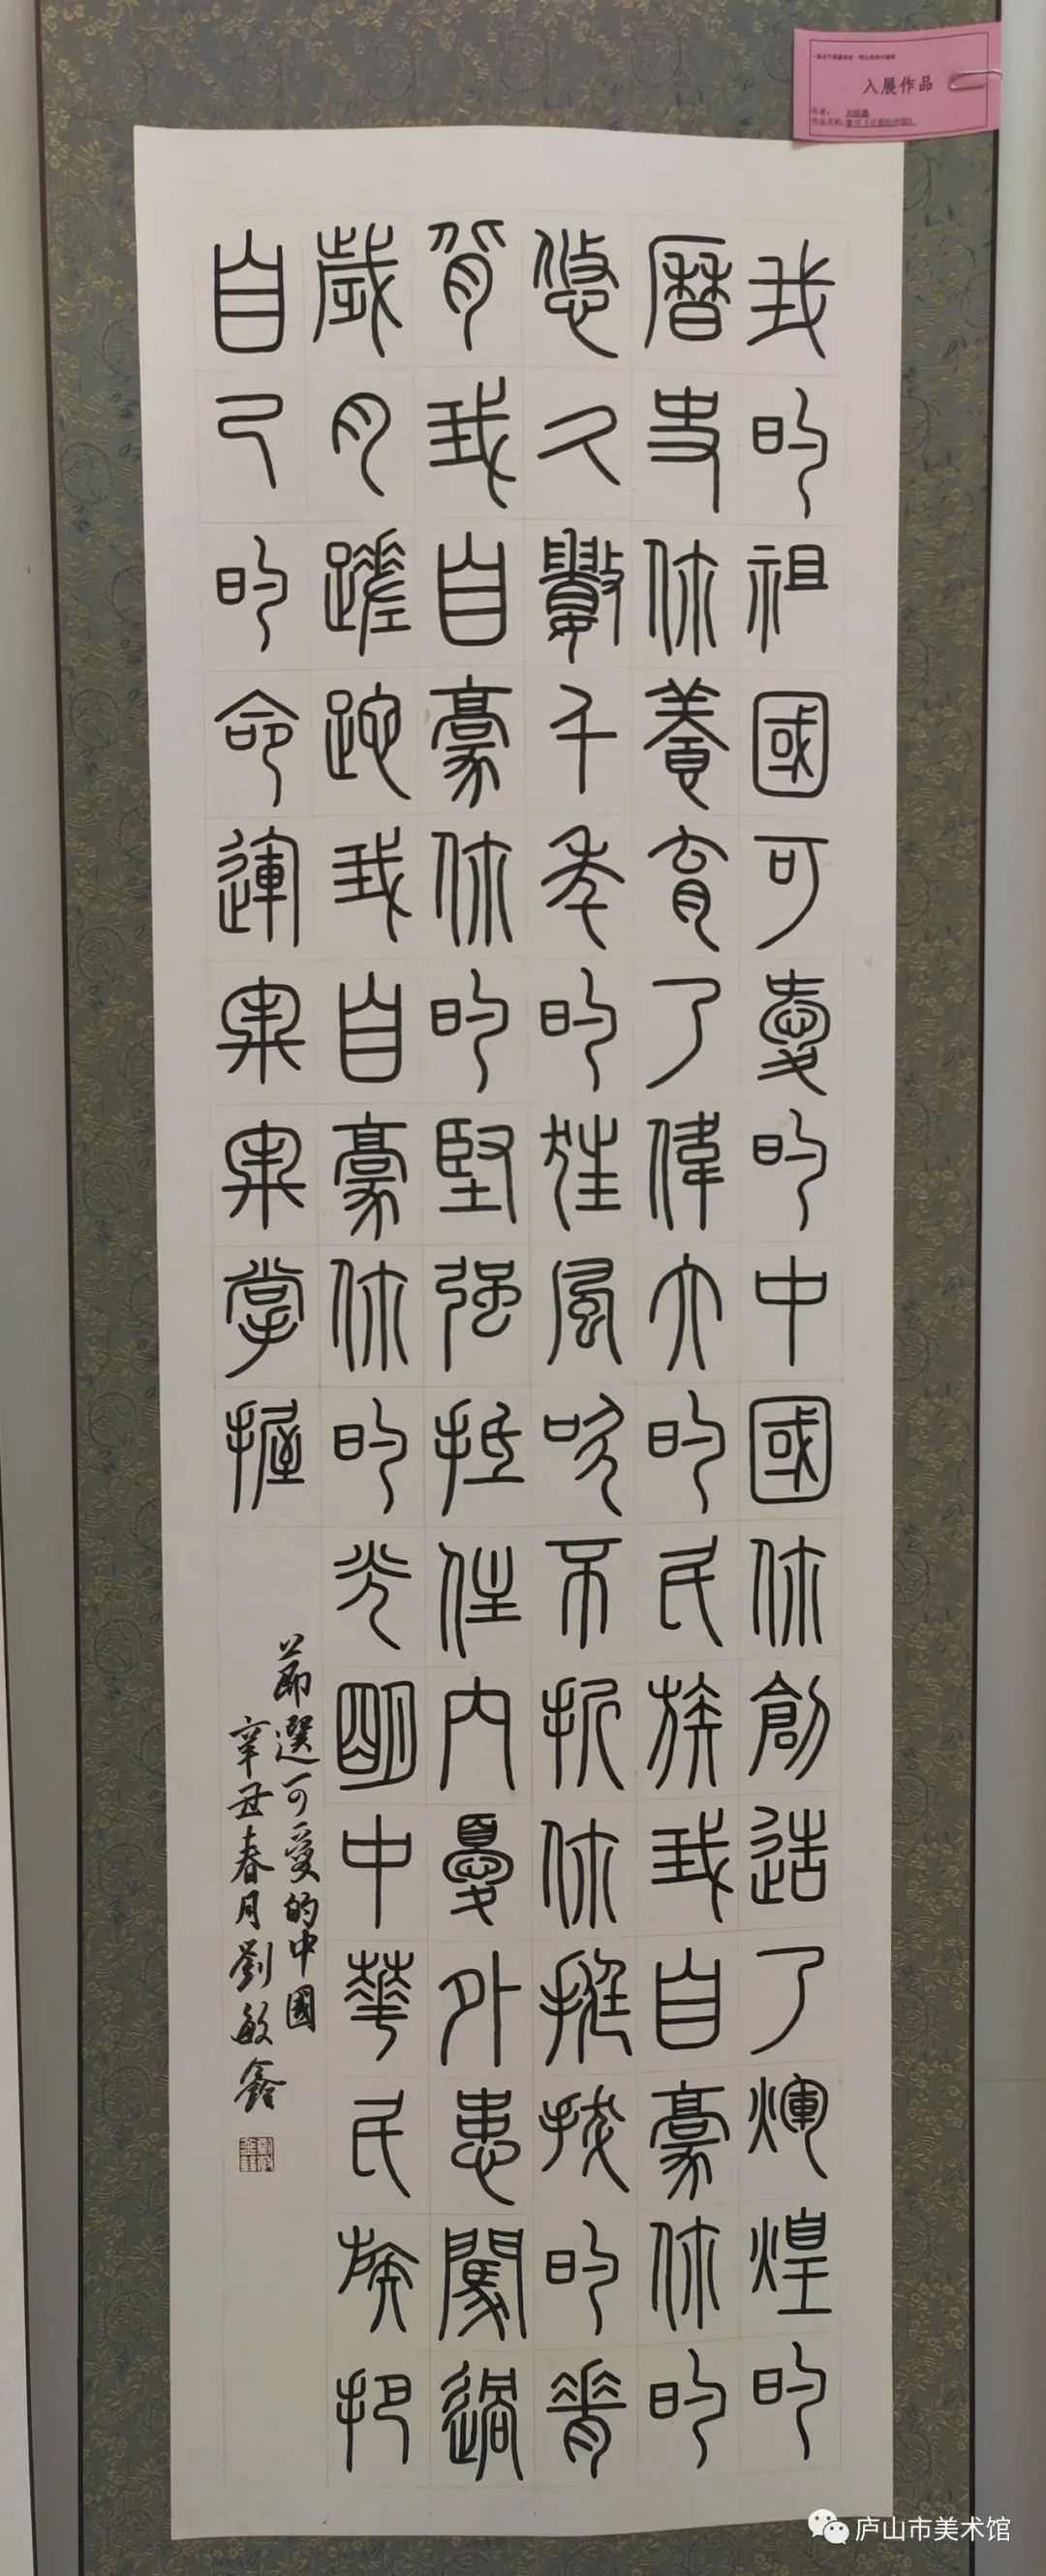 入展作品
我的祖國可愛的中國你創造了輝煌的
曆史你養育了偉大的民族我自豪你的
悠久數千年的狂風吹不折你挺拔的脊
背我自豪你的堅強抵住內憂外患闖過
歲月蹉跎我自豪你的光明中華民族把
自己的命運牢牢掌握
節選可愛的中國
辛丑春月劉敏鑫
庐山市美术馆